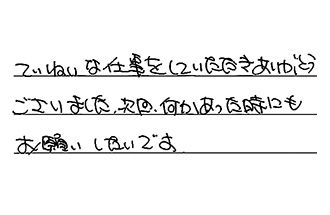 ていねいな仕事をしていただきありがとう
ございました、次回、何かあった時にも
お願いしたいです